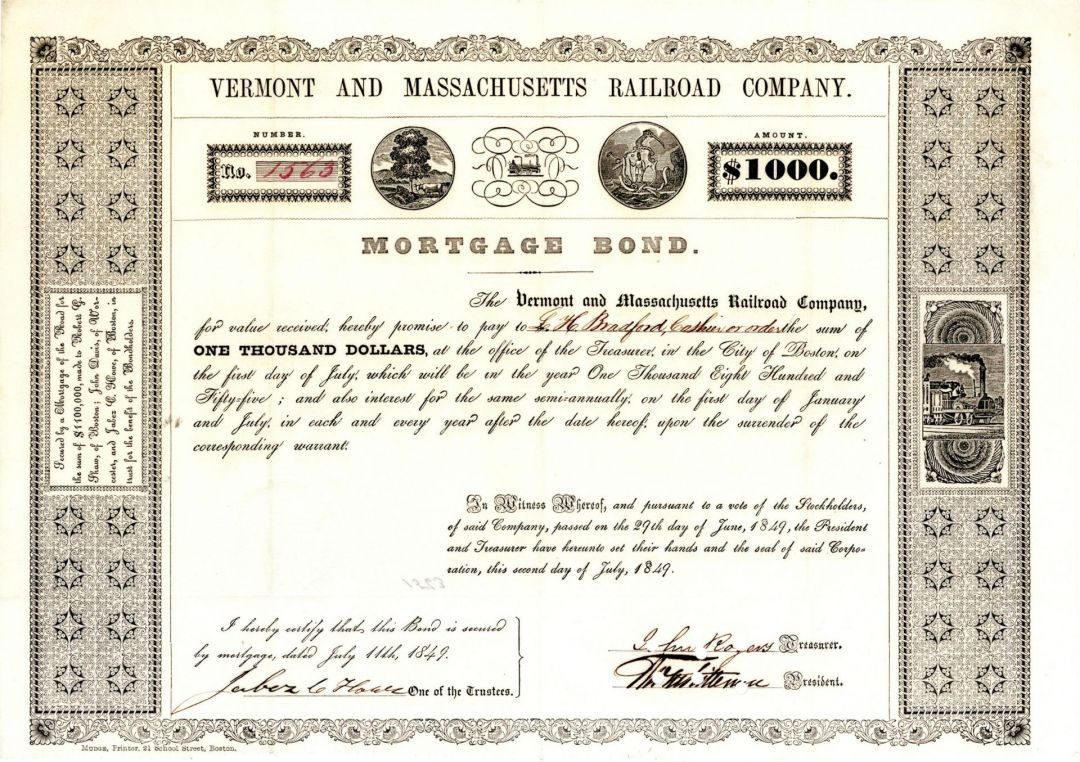 VERMONT AND MASSACHUSETTS RAILROAD COMPANY.
NUMBER.
No. 1563
AMOUNT.
$1000.
MORTGAGE BOND.
The Vermont and Massachusetts Railroad Company,
for value received, hereby promise to pay to L H Bradford, Cashier or order the sum of
ONE THOUSAND DOLLARS, at the office of the Treasurer, in the City of Boston, on
the first day of July, which will be in the year One Thousand Eight Hundred and
Fifty-five ; and also interest for the same semi-annually, on the first day of January
and July, in each and every year after the date hereof, upon the surrender of the
corresponding warrant.
In Witness Whereof, and pursuant to a vote of the Stockholders,
of said Company, passed on the 29th day of June, 1849, the President
and Treasurer have hereunto set their hands and the seal of said Corpo-
ration, this second day of July, 1849.
I hereby certify that this Bond is secured
by mortgage, dated July 11th, 1849.
Jabez C Howe One of the Trustees.
Rogers Treasurer.
President.
Secured by a Mortgage of the Road for
the sum of $1100,000, made to Robert G.
Shaw, of Boston; John Davis, of Wor-
cester, and Jabez C. Howe, of Boston, in
trust for the benefit of the Bondholders.
MUDGE, Printer, 21 School Street, Boston.